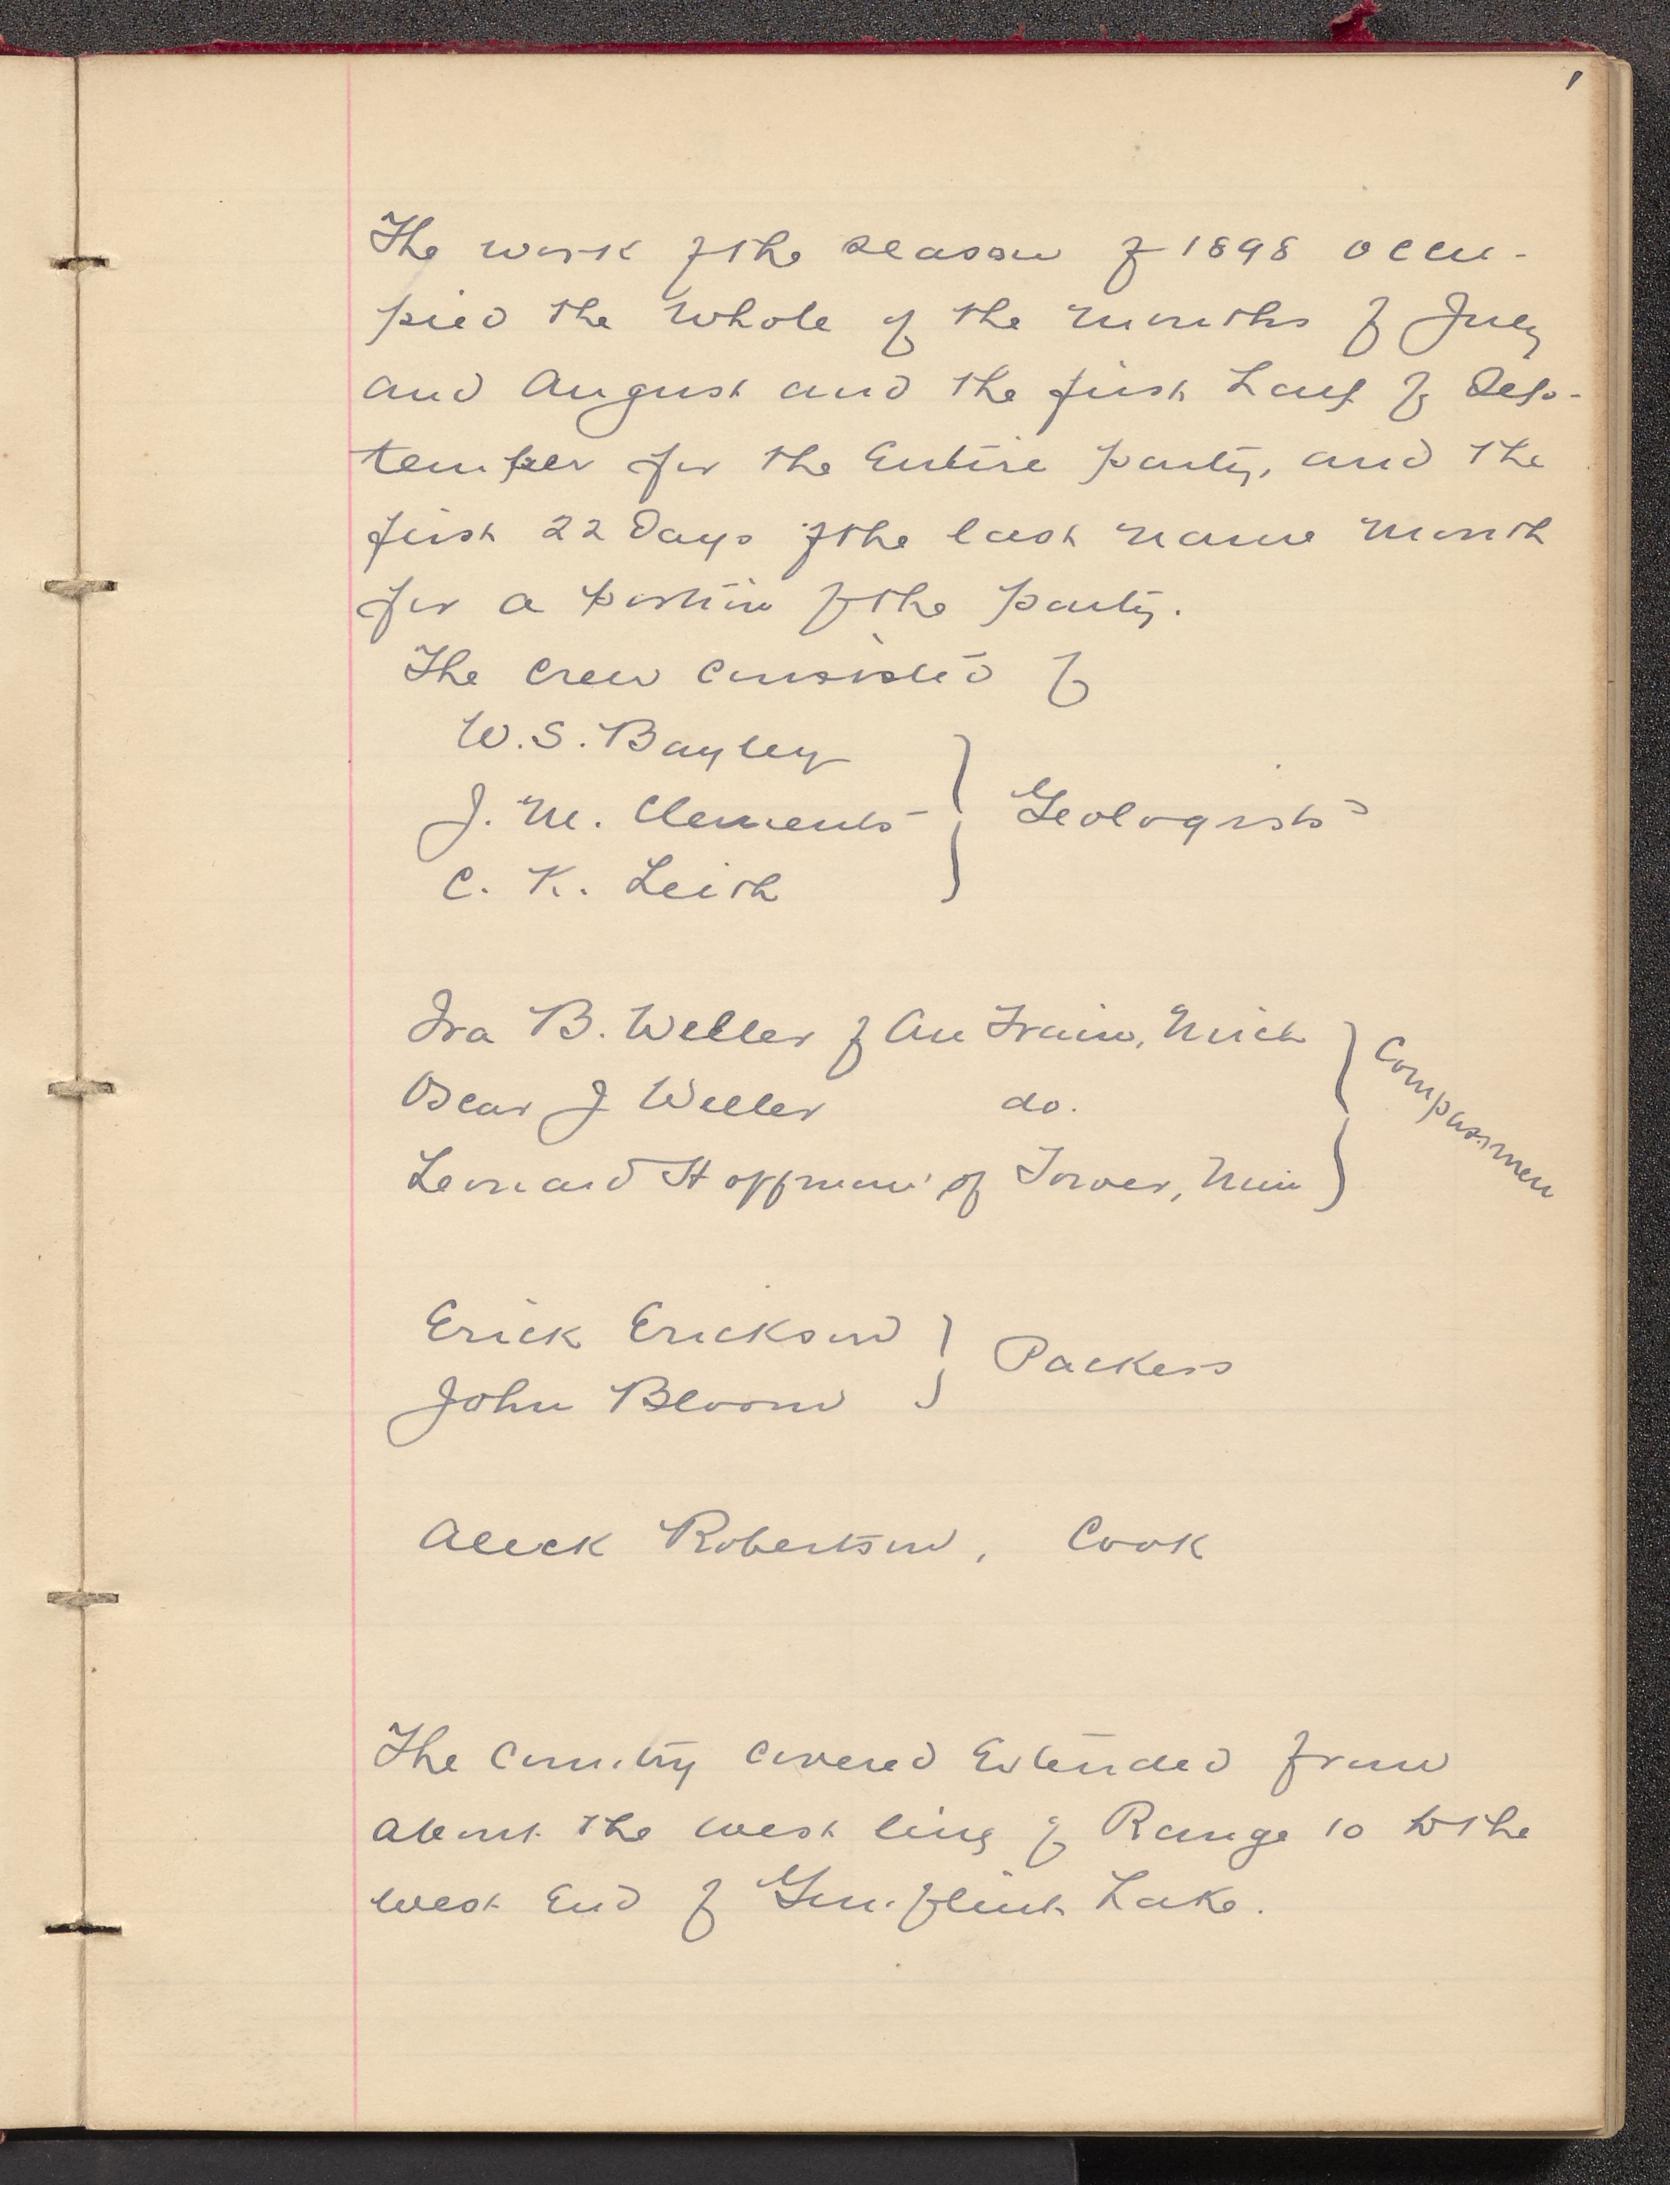 1
The work of the season of 1898 occu-
pied the whole of the months of July
and August and the first half of Sep-
tember for the Entire party, and the
first 22 Days of the last name month
for a portion of the party.
The Crew consisted of
W. S. Bayley
J. M. Clements } Geologists
C. K. Leith
Ira B. Weller of Au Train, Mich
Oscar J Weller do. } Compassmen
Leonard Hoffman of Tower, Min
Erick Erickson } Packers
John Bloom
Aleck Robertson, Cook
The Country covered Extended from
about the west line of Range 10 to the
west End of Gunflint Lake.